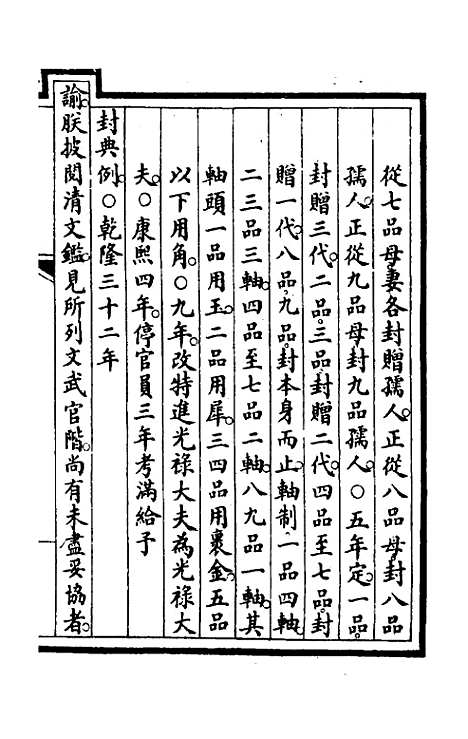 從七品母妻各封贈孺人。正從八品母封八品
孺人。正從九品母封九品孺人。○五年定。一品。
封贈三代。二品。三品。封贈二代。四品至七品。封
贈一代。八品。九品。封本身而止。軸制。一品四軸。
二三品三軸。四品至七品二軸。八九品一軸。其
軸頭一品用玉。二品用犀。三四品用裹金。五品
以下用角。○九年。改特進光祿大夫為光祿大
夫。○康熙四年。停官員三年考滿給予
封典例。○乾隆三十二年
諭。朕披閱清文鑑。見所列文武官階。尚有未盡妥協者。